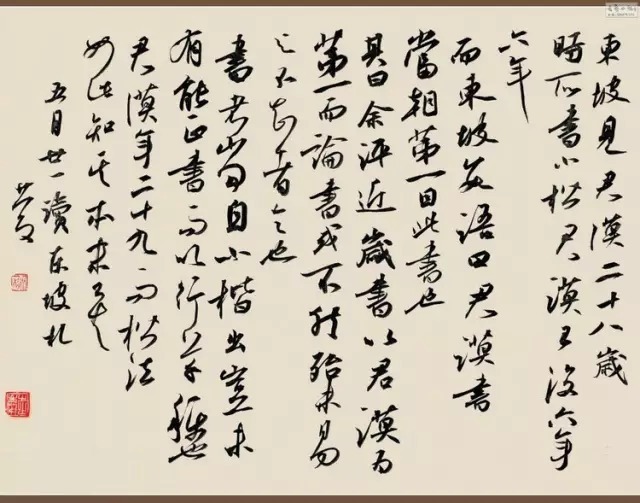 東坡見君谟二十八歲
時所書小楷君谟已後六年
六年
而東坡笑語曰君谟書
當朝第一曰此書也
其曰余评近歲書以君谟为
第一而論書或不然殆未易
之不知者言也
書者当自小楷出豈未
有能正書而以行草稱也
君谟年二十九而楷法
如此知其本末矣
五月廿一讀东坡札